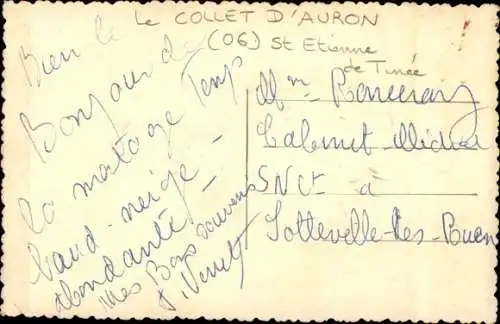 Le COLLET D'AURON
(06) St Etienne
de Tinée
Bien le
Bonjour de
la montagne Temps
chaud - neige -
abondante -
mes Bons souvenirs
Mme
Cabinet Médical
SNCF à
Sotteville-les-Rouen